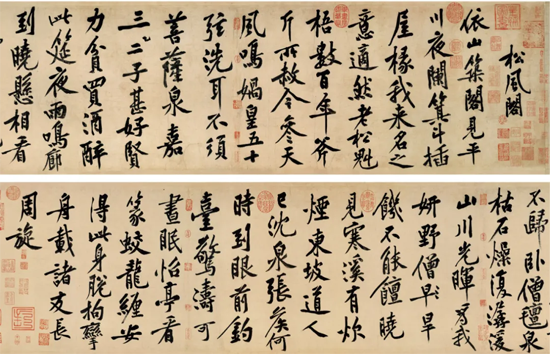 松風閣
依山築閣見平
川夜闌箕斗插
屋椽我來名之
意適然老松魁
梧數百年斧
斤所赦今參天
風鳴媧皇五十
弦洗耳不須
菩薩泉嘉
三二子甚好賢
力貧買酒醉
此筵夜雨鳴廊
到曉懸相看
不歸卧僧氊泉
枯石燥復潺湲
山川光暉為我
妍野僧早旱
饑不能饘曉
見寒溪有炊
煙東坡道人
已沈泉張侯何
時到眼前釣
臺驚濤可
晝眠怡亭看
篆蛟龍纏安
得此身脫拘攣
舟載諸友長
周旋